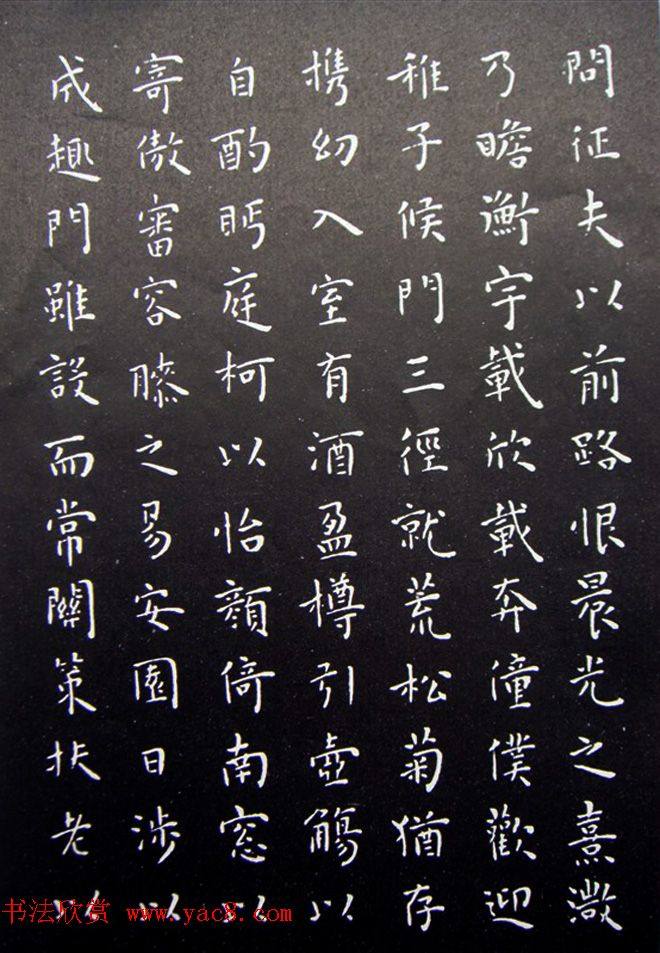 問征夫以前路恨晨光之熹微
乃瞻衡宇載欣載奔僮僕歡迎
稚子候門三徑就荒松菊猶存
携幼入室有酒盈樽引壺觴以
自酌眄庭柯以怡顔倚南窓以
寄傲審容膝之易安園日涉以
成趣門雖設而常關策扶老以
书法欣赏 www.yac8.com